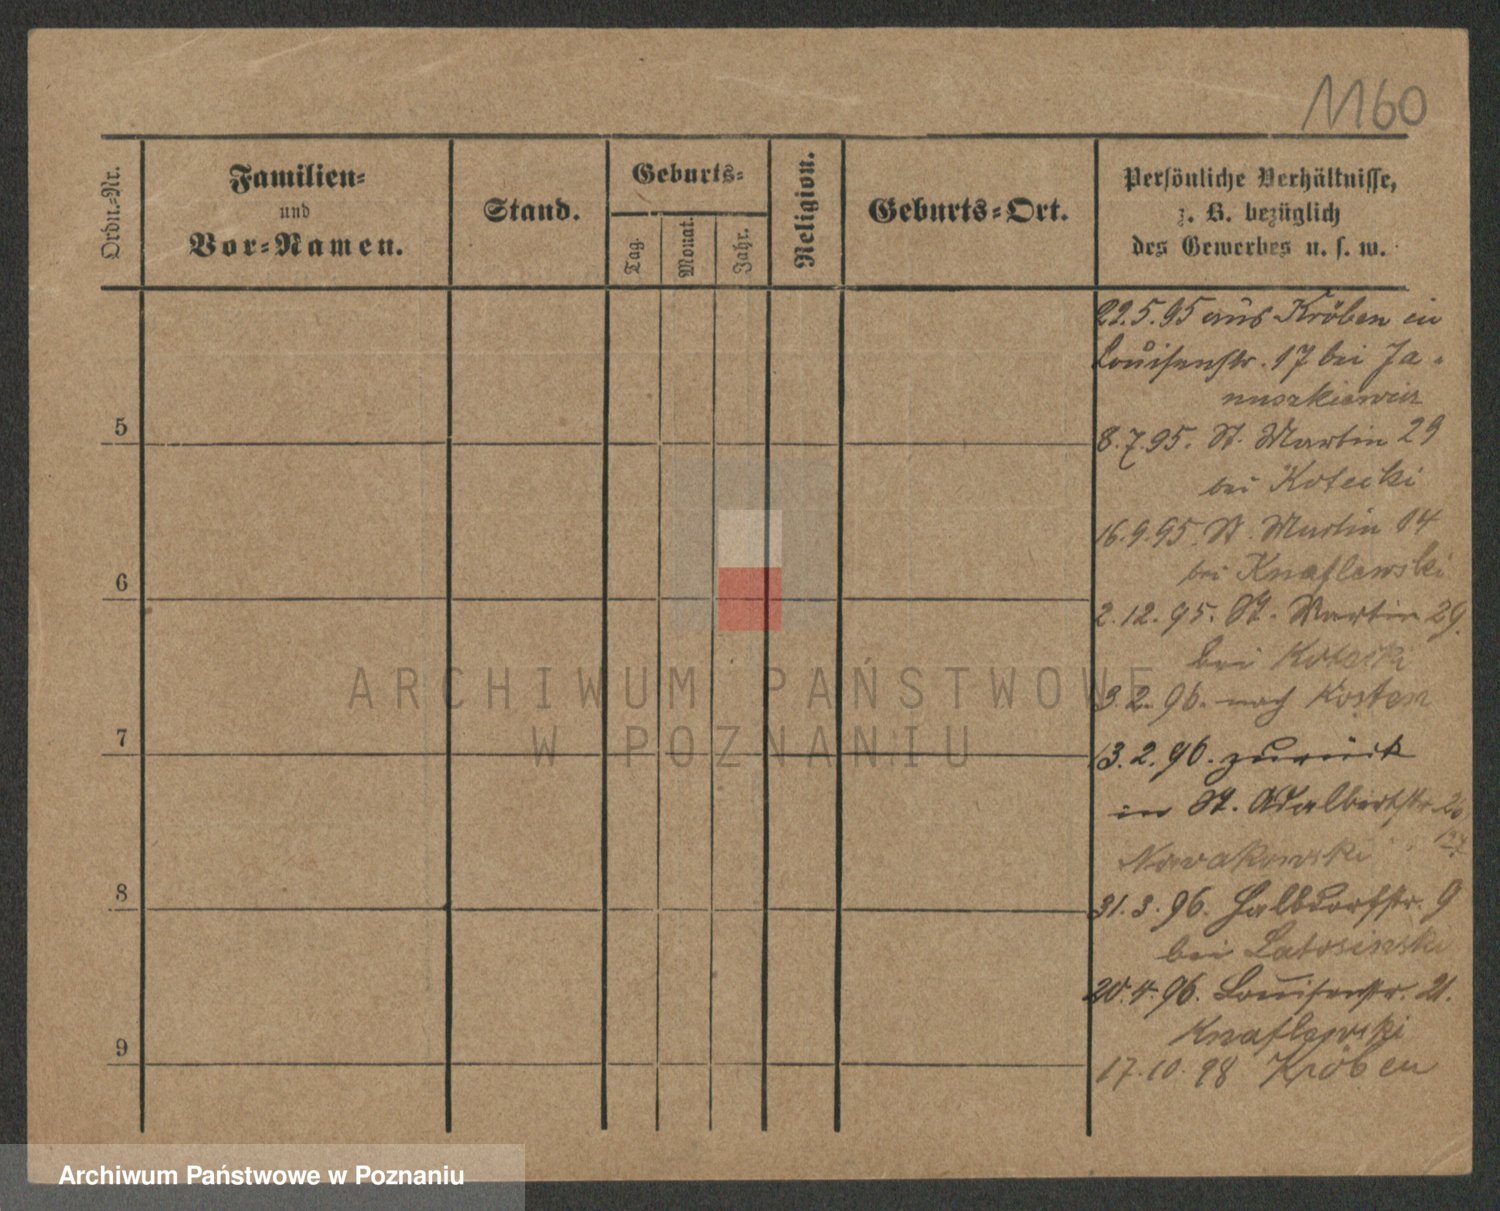 1160
Ordn.-Nr.
Familien-
und
Vor-Namen.
Stand.
Geburts-
Tag.
Monat.
Jahr.
Religion.
Geburts-Ort.
Persönliche Verhältnisse,
z. B. bezüglich
des Gewerbes u. s. w.
5
6
7
8
9
22.5.95 aus Kröben in
Louisenstr. 17 bei Ja-
nuszkiewicz
8.7.95. St. Martin 29
bei Kotecki
16.9.95. St. Martin 14
bei Knaflewski
2.12.95. St. Martin 29.
bei Kotecki
3.2.96. nach Kosten
13.2.96. zurück
in St. Adalbertstr. 26
27
Nowakowski
31.3.96. Halbdorfstr. 9
bei Latosinski
20.4.96. Louisenstr. 21.
Knaflewski
17.10.98 Kröben
ARCHIWUM PAŃSTWOWE
W POZNANIU
Archiwum Państwowe w Poznaniu